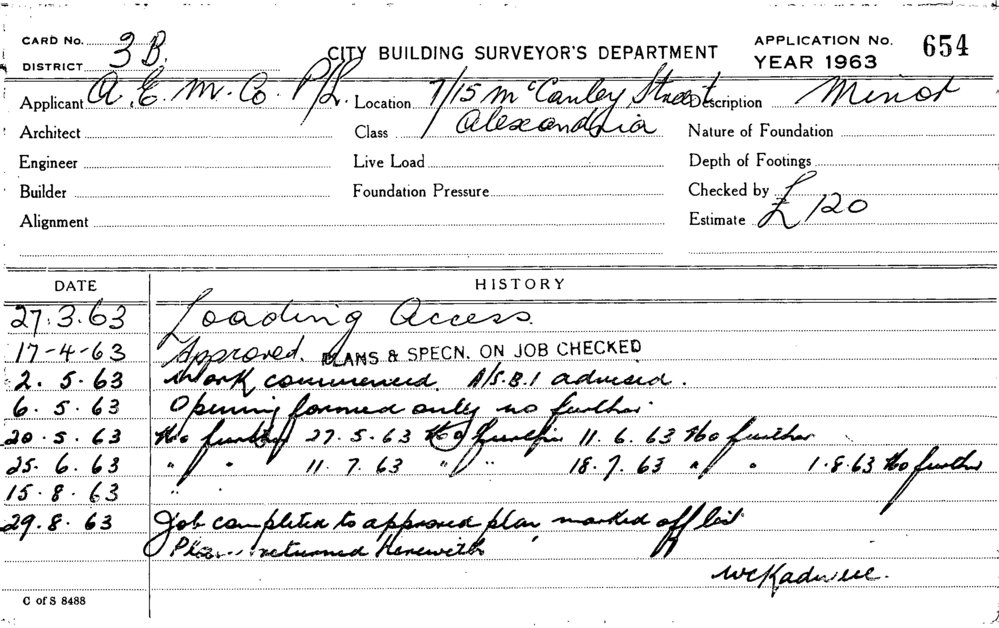 CARD No. 3B. CITY BUILDING SURVEYOR'S DEPARTMENT APPLICATION No. 654
DISTRICT YEAR 1963
Applicant A.E.M. Co. P/L. Location 7/15 McCauley Street Description Minor
Architect Class Alexandria Nature of Foundation
Engineer Live Load Depth of Footings
Builder Foundation Pressure Checked by
Alignment Estimate £120
DATE HISTORY
27.3.63 Loading Access.
17-4-63 Approved. PLANS & SPECN. ON JOB CHECKED
2.5.63 Work commenced. A/S.B.I advised.
6.5.63 Opening formed only no further
20.5.63 No further 27.5.63 No further 11.6.63 No further
25.6.63 " " 11.7.63 " " 18.7.63 " " 1.8.63 No further
15.8.63 "
29.8.63 Job completed to approved plan marked off list
Plan returned herewith
C of S 8488